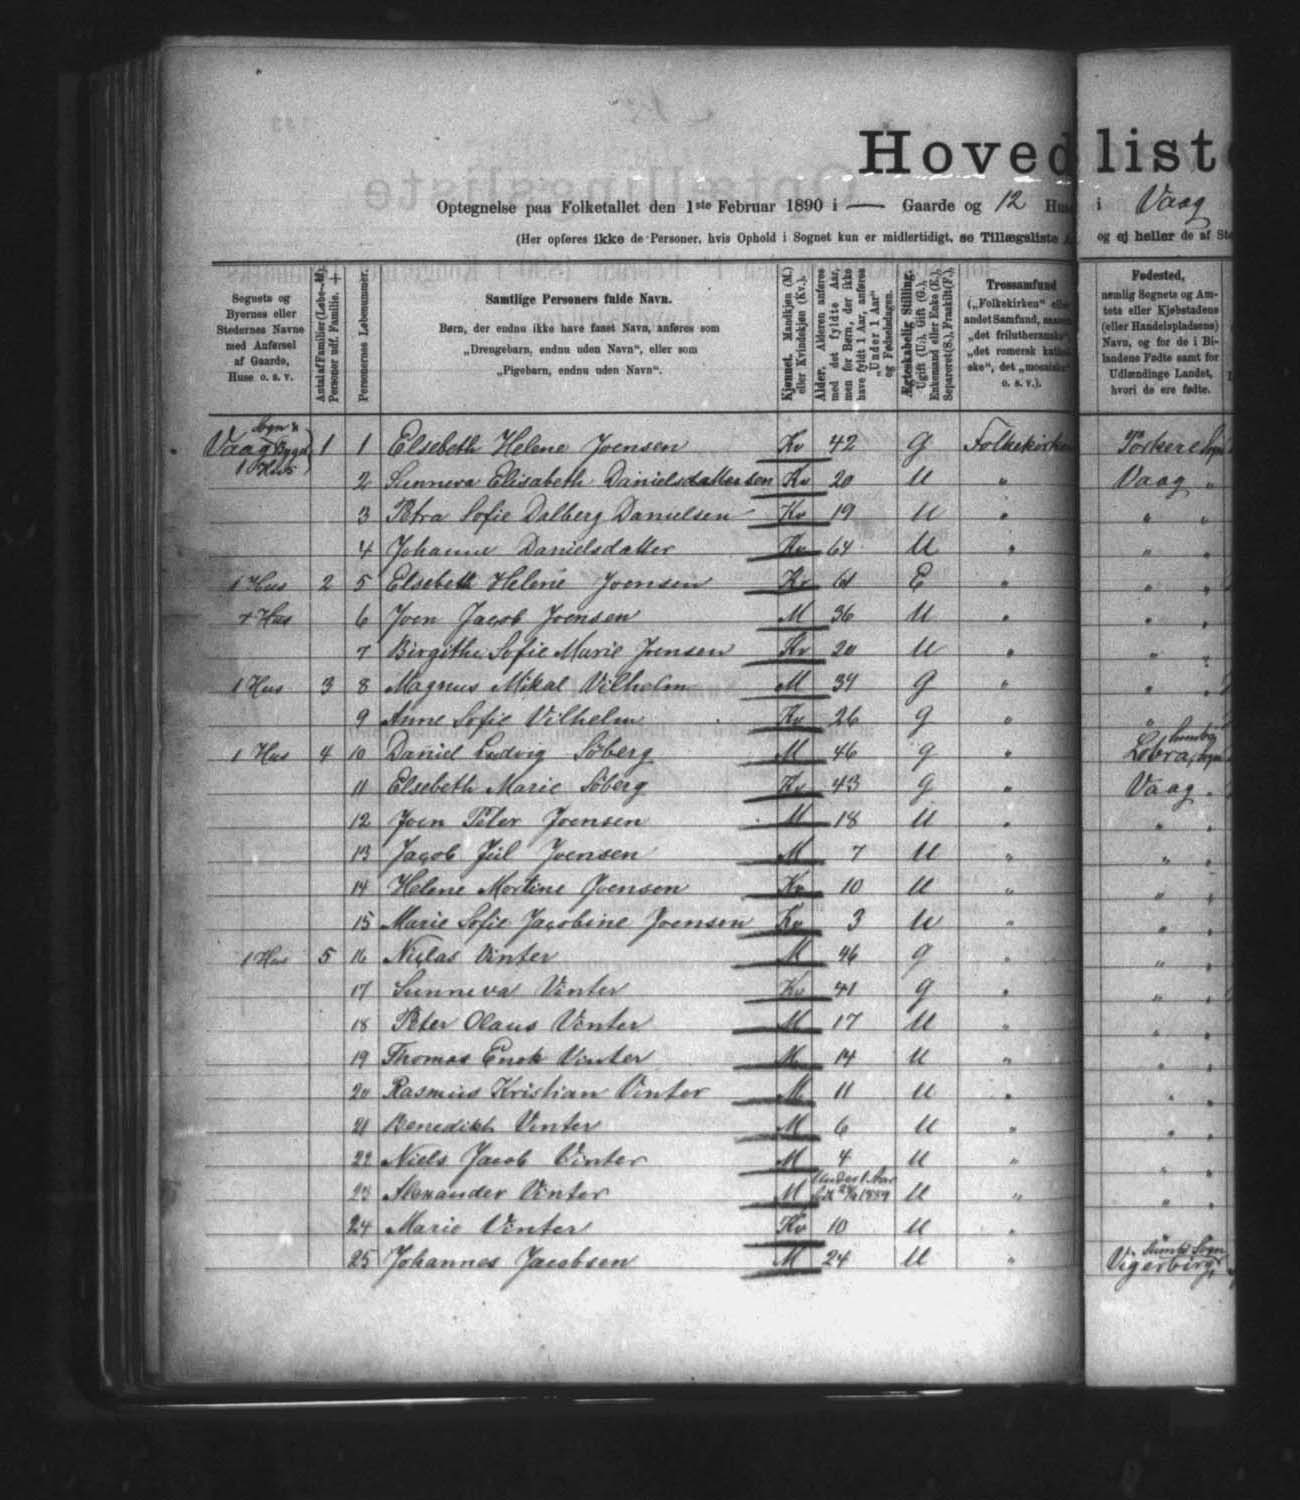 Hovedliste
Optegnelse paa Folketallet den 1ste Februar 1890 i — Gaarde og 12 Huse i Vaag
(Her opføres ikke de Personer, hvis Ophold i Sognet kun er midlertidigt, se Tillægsliste og ej heller de af
Sognets og Byernes eller Stedernes Navne med Anførsel af Gaarde, Huse o. s. v.
Antal af Familier (Løbe-№).
Personer udf. Familie. +
Personernes Løbenummer.
Samtlige Personers fulde Navn.
Børn, der endnu ikke have faaet Navn, anføres som
„Drengebarn, endnu uden Navn“, eller som
„Pigebarn, endnu uden Navn“.
Kjønnet. Mandkjøn (M.) eller Kvindekjøn (Kv.).
Alder. Alderen anføres med det fyldte Aar, men for Børn, der ikke have fyldt 1 Aar, anføres „Under 1 Aar“ og Fødselsdagen.
Ægteskabelig Stilling. Ugift (U.), Gift (G.), Enkemand eller Enke (E.), Separeret (S.), Fraskilt (F.).
Trossamfund („Folkekirken“ eller andet Samfund, „det frilutheranske“, „det romersk katholske“, det „mosaiske“ o. s. v.).
Fødested, nemlig Sognets og Amtets eller Kjøbstadens (eller Handelspladsens) Navn, og for de i Bilandene Fødte samt for Udlændinge Landet, hvori de ere fødte.
Sogn
Vaag Bygd 1 1 Elsebeth Helene Joensen Kv 42 G Folkekirken Sogn
1 Hus
2 Sunneva Elisabeth Danielsdattersen Kv 20 U " Vaag "
3 Petra Sofie Dalberg Danielsen Kv 19 U " " "
4 Johanne Danielsdatter Kv 64 U " " "
1 Hus 2 5 Elsebeth Helene Joensen Kv 61 E " " "
+ Hus 6 Joen Jacob Joensen M 36 U " " "
7 Birgithe Sofie Marie Joensen Kv 20 U " " "
1 Hus 3 8 Magnus Mikal Vilhelm M 34 G " " "
9 Anne Sofie Vilhelm Kv 26 G " "
1 Hus 4 10 Daniel Ludvig Söberg M 46 G " Lobra, Sogn
11 Elsebeth Marie Söberg Kv 43 G " Vaag "
12 Joen Peter Joensen M 18 U " " "
13 Jacob Jul Joensen M 7 U " " "
14 Helene Mortine Joensen Kv 10 U " " "
15 Marie Sofie Jacobine Joensen Kv 3 U " " "
1 Hus 5 16 Niclas Vinter M 46 G " " "
17 Sunneva Vinter Kv 41 G " " "
18 Peter Olaus Vinter M 17 U " " "
19 Thomas Enok Vinter M 14 U " " "
20 Rasmus Kristian Vinter M 11 U " " "
21 Benedikt Vinter M 6 U " " "
22 Niels Jacob Vinter M 4 U " " "
23 Alexander Vinter M Under 1 Aar 1889 U " " "
24 Marie Vinter Kv 10 U "
25 Johannes Jacobsen M 24 U " Sumbø Sogn